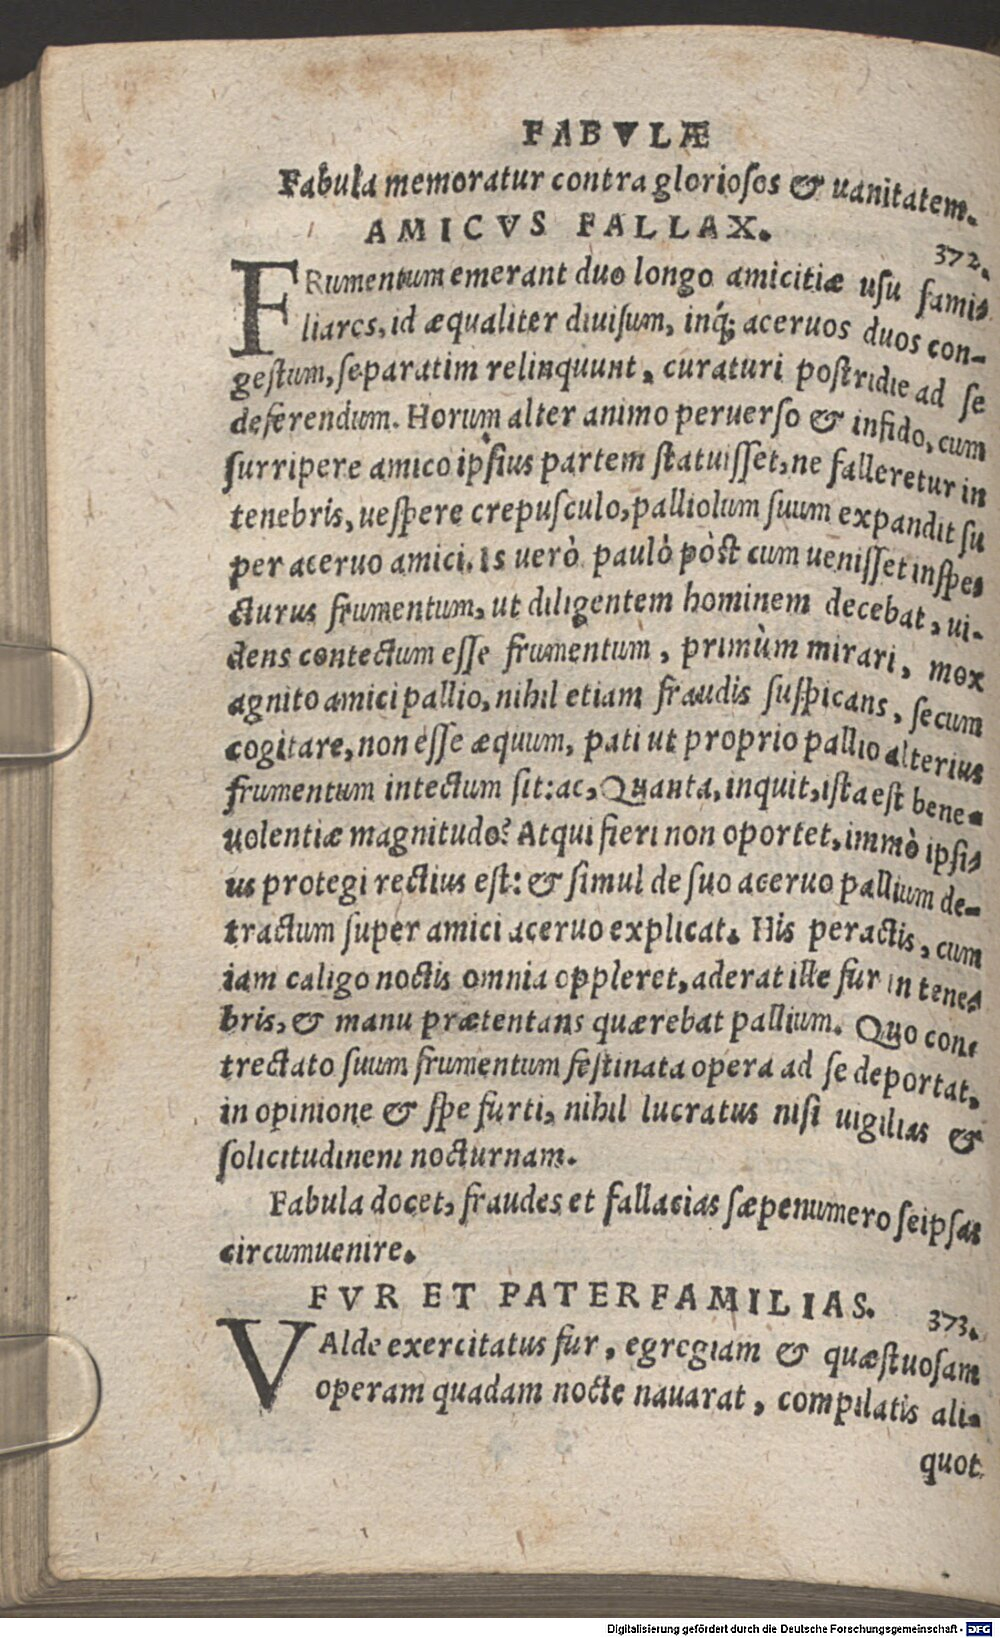 FABVLÆ
Fabula memoratur contra gloriosos & uanitatem.
AMICVS FALLAX.
372.
FRumentum emerant duo longo amicitiæ usu fami-
liares, id æqualiter diuisum, inq́; aceruos duos con-
gestum, separatim relinquunt, curaturi postridie ad se
deferendum. Horum alter animo peruerso & infido, cum
surripere amico ipsius partem statuisset, ne falleretur in
tenebris, uespere crepusculo, palliolum suum expandit su
per aceruo amici. Is uerò paulò pòst cum uenisset inspe-
cturus frumentum, ut diligentem hominem decebat, ui-
dens contectum esse frumentum, primùm mirari, mox
agnito amici pallio, nihil etiam fraudis suspicans, secum
cogitare, non esse æquum, pati ut proprio pallio alterius
frumentum intectum sit: ac, Quanta, inquit, ista est bene-
uolentiæ magnitudo? Atqui fieri non oportet, immò ipsi-
us protegi rectius est: & simul de suo aceruo pallium de-
tractum super amici aceruo explicat. His peractis, cum
iam caligo noctis omnia oppleret, aderat ille fur in tene-
bris, & manu prætentans quærebat pallium. Quo con-
trectato suum frumentum festinata opera ad se deportat,
in opinione & spe furti, nihil lucratus nisi uigilias &
solicitudinem nocturnam.
Fabula docet, fraudes et fallacias sæpenumero seipsas
circumuenire.
FVR ET PATERFAMILIAS.
373.
VAlde exercitatus fur, egregiam & quæstuosam
operam quadam nocte nauarat, compilatis ali-
quot
Digitalisierung gefördert durch die Deutsche Forschungsgemeinschaft - DFG